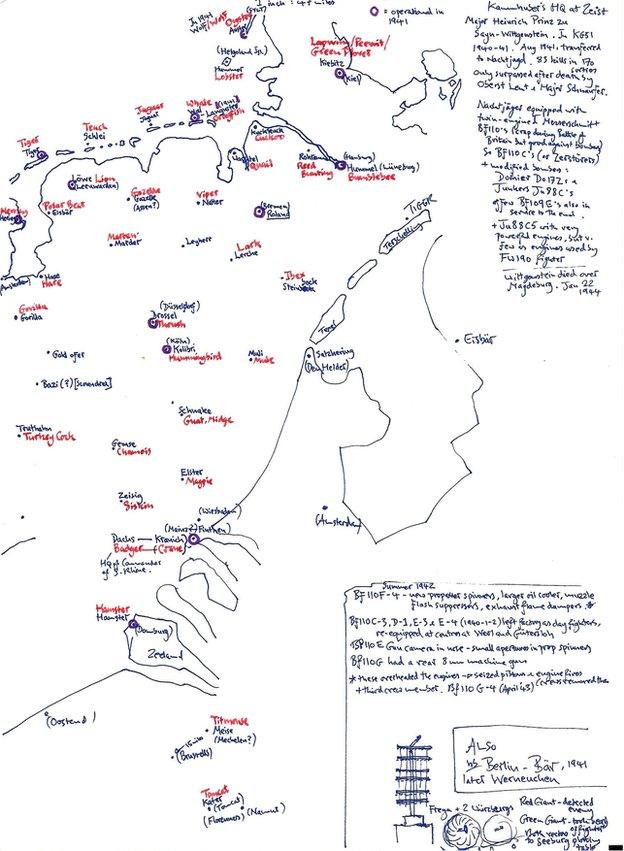 1 inch : 45 miles
= operational in 1941
In 1941
Wolf/Wolf
Oyster
Auster
(Sylt)
(Helgoland Is.)
Hummer
Lobster
Lapwing/Peewit/
Green Plover
Kiebitz
(Kiel)
Kammhuber's HQ at Zeist
Major Heinrich Prinz zu
Sayn-Wittgenstein. In KG51
1940-41. Aug 1941, transferred
to Nachtjagd. 83 kills in 170
sorties
only surpassed after death by
Oberst Lent & Major Schnaufer.
Nachtjäger equipped with
twin-engined Messerschmitt
BF110's (crap during Battle of
Britain but good against bombers)
So BF110C's (or Zerstörers)
+ modified bombers:
Dornier Do17Z's &
Junkers Ju88C's
a few BF109E's also in
service to the end.
+ Ju88C5 with very
powerful engines, but v.
few as engines used by
FW190 fighter
Wittgenstein died over
Magdeburg. Jan 22
1944
Jaguar
Jaguar
Whale
Wal
Langeoog
Tench
Schlei
Tiger
Tiger
Kuckuck
Cuckoo
Wachtel
Quail
Rohrammer
Reed
Bunting
(Hamburg)
Hummel (Lüneburg)
Bumblebee
Löwe Lion
(Leeuwarden)
Polar Bear
Eisbär
Gazelle
Gazelle
(Assen?)
Viper
Natter
(Bremen)
Roland
Herring
Hering
Marten
Marder
Leghorn
Lark
Lerche
TIGER
Terschelling
Hase
Hare
Ibex
Steinbock
Gorilla
Gorilla
(Düsseldorf)
Drossel
Thrush
Texel
Salzhering
(Den Helder)
Eisbär
(Köln)
Kolibri
Hummingbird
Muli
Mule
Goldafer
Bazi (?) [Scoundrel]
Schnake
Gnat, Midge
Truthahn
Turkey Cock
Gemse
Chamois
Elster
Magpie
Zeisig
Siskin
(Wiesbaden)
(Mainz?) Finthen
(Amsterdam)
Dachs — Kranich
Badger — Crane
HQ of Commander
of S. Rhine.
Hamster
Hamster
(Domburg)
Zeeland
(Oostend)
Summer 1942
BF110F-4 - new propeller spinners, larger oil cooler, muzzle
Flash suppressors, exhaust flame dampers. *
BF110C-3, D-1, E-3 & E-4 (1940-1-2) left factory as day fighters,
re-equipped at centres at Weerl and Gütersloh
BF110E Gun camera in nose - small apertures in prop spinners
BF110G had a rear 8mm machine gun
* these overheated the engines → seized pistons & engine fires
+ third crew member. BF110G-4 (April 43) (crews removed them
Titmouse
Meise
(Mechelen?)
15 miles
(Brussels)
Tomcat
Kater
(Tomcat)
(Florennes) (Namur)
ALSO
Berlin - Bär, 1941
later Werneuchen
Freya + 2 Würzburgs
Red Giant - detected
enemy
Green Giant - tracking
of fighter
Both vectored
to Seeburg plotting
table